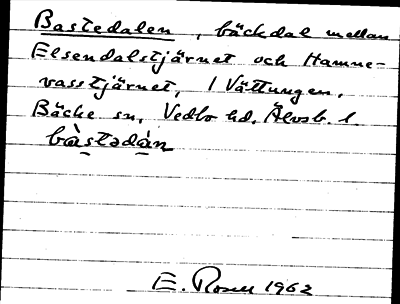 Bastedalen, bäckdal mellan
Elsendalstjärnet och Hamne-
vasstjärnet, / Vättungen.
Bäcke sn, Vedbo hd. Älvsb. l.
bàstədàn
E. Rosell 1962